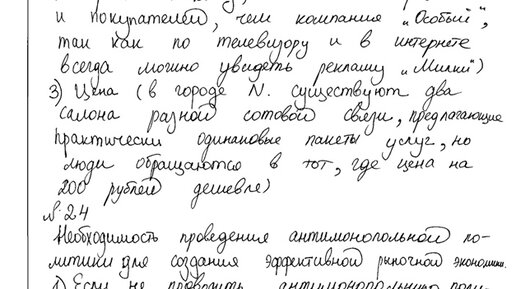 и покупателей, чем компания „Особый",
так как по телевизору и в интернете
всегда можно увидеть рекламу „Милки")
3) Цена (в городе N. существуют два
салона разной сотовой связи, предлагающие
практически одинаковые пакеты услуг, но
люди обращаются в тот, где цена на
200 рублей дешевле)
№24
Необходимость проведения антимонопольной по-
литики для создания эффективной рыночной экономики.
1) Если не проводить антимонопольную поли-